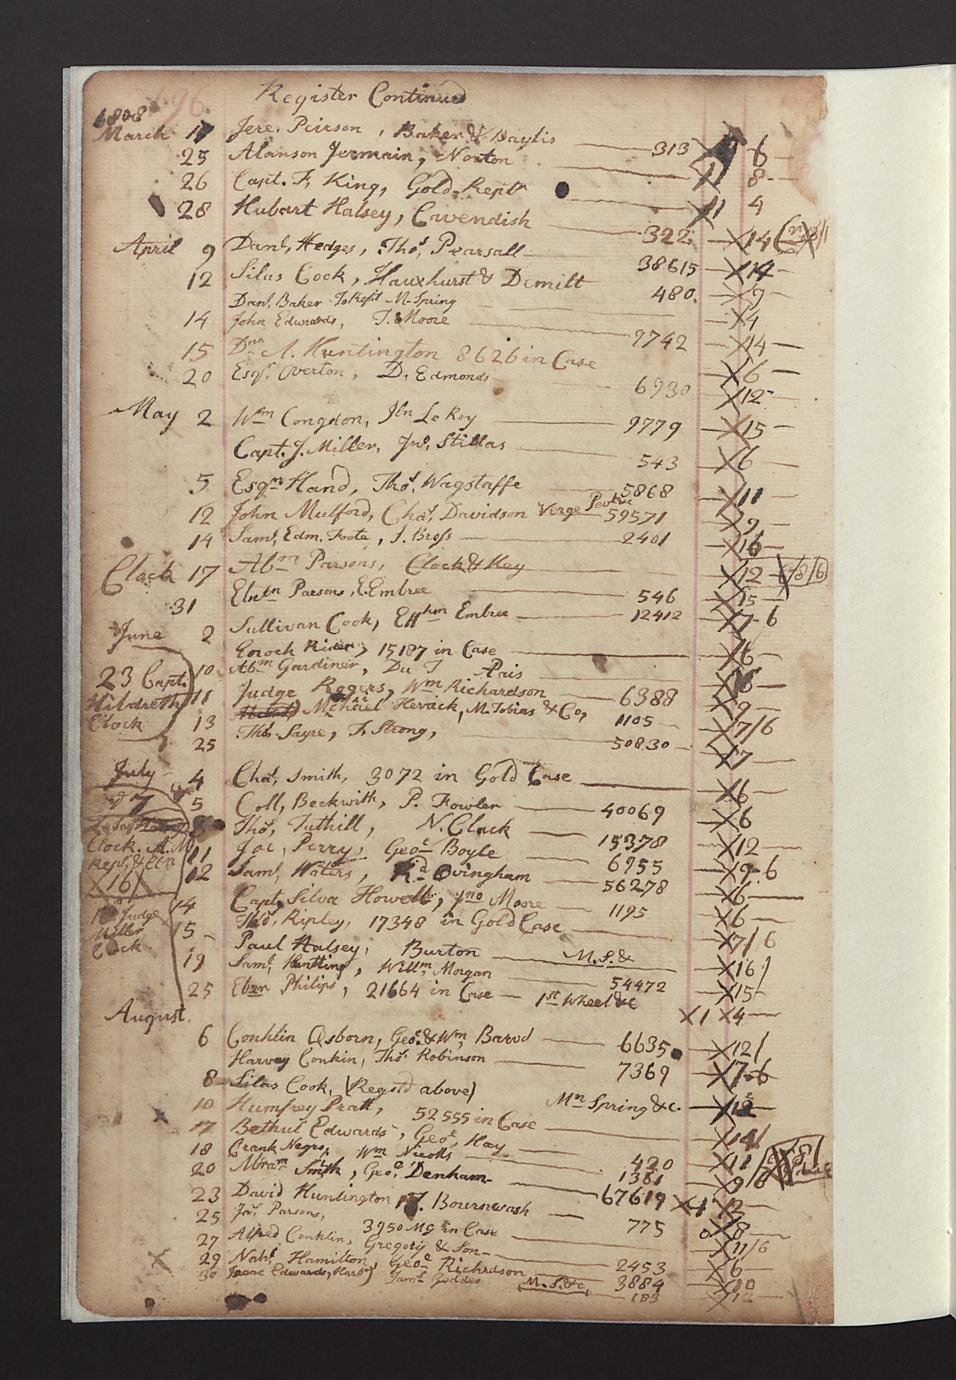 196. Register Continued
1808
March 17 Jere. Peirson, Baker & Baylis 313 6
25 Alanson Jermain, Norton 11 8
26 Capt. F. King, Gold Rept 11 4
28 Hubart Halsey, Cavendish 322 14
April 9 Danl. Hedges, Thos. Pearsall 38615 14
12 Silas Cook, Hauxhurst & Demilt 480. 9
Danl. Baker To Rept M. Spring 4
14 John Edwards, T. Moore 9742 14
15 A. Huntington 8626 in Case 6
20 Esqr. Overton, D. Edmonds 6930 12
May 2 Wm Congdon, Jln Le Roy 9779 15
Capt. J. Miller, Jno. Stillas 543 6
5 Esqr Hand, Thos. Wagstaffe 5868 11
12 John Mulford, Chas. Davidson Verge 59571 9
14 Saml. Edm. Foote, J. Bross 2401 16
Clock 17 Abm Parsons, Clock & Key 12 8/6
31 Elntn Parsons, E. Embree 546 15
June 2 Sullivan Cook, Effhm Embree 12412 7-6
Enoch Rider, 15187 in Case 6
10 Abm Gardiner, Du T Pais
11 Judge Rogers, Wm Richardson 6388 9
13 Michael Hevack, M. Tobias & Co, 1105 7/6
25 Thos. Sayre, F. Strong, 50830 7
23 Capt.
Hildreth
Clock
July 4 Chas. Smith, 3072 in Gold Case 6
5 Coll. Beckwith, P. Fowler 40069 6
8 Thos. Tuthill, N. Clack 15378 12
11 Jac. Perry, Geo. Boyle 6955 9-6
12 Saml. Waters, Rd Ovingham 56278 6
14 Capt. Silva Howell, Jno Moore 1195 6
15 Thos. Ripley, 17348 in Gold Case 7/6
Paul Halsey, Burton M. S. & 16
19 Saml. Huntting, Willm. Morgan 54472 15
25 Ebzr Philips, 21664 in Case 1st Wheel &c 1 4
Clock. A.M
Reps. & Cln
16
Judge
Miller
Clock
August.
6 Conklin Osborn, Geo. & Wm Barwd 6635 12/
Harvey Conkin, Thos. Robinson 7369 7-6
8 Silas Cook, (Registd above) Mn Spring &c. 12
10 Humfrey Pratt, 52555 in Case 14/
17 Bethul Edwards, Geo. Hay 420 11
18 Crank Negro, Wm Nicolls 1381 9/
20 Abram Smith, Geo. Denham 67619
23 David Huntington, Bournwash 775 8
25 Jas. Parsons, 3950 MG in Case 11/6
27 Alfred Conklin, Gregory & Son 2453 6
29 Nahl. Hamilton, Geo. Richrdson 3884 10
30 Isaac Edwards, Saml. Geddes M. S. &c 183 12